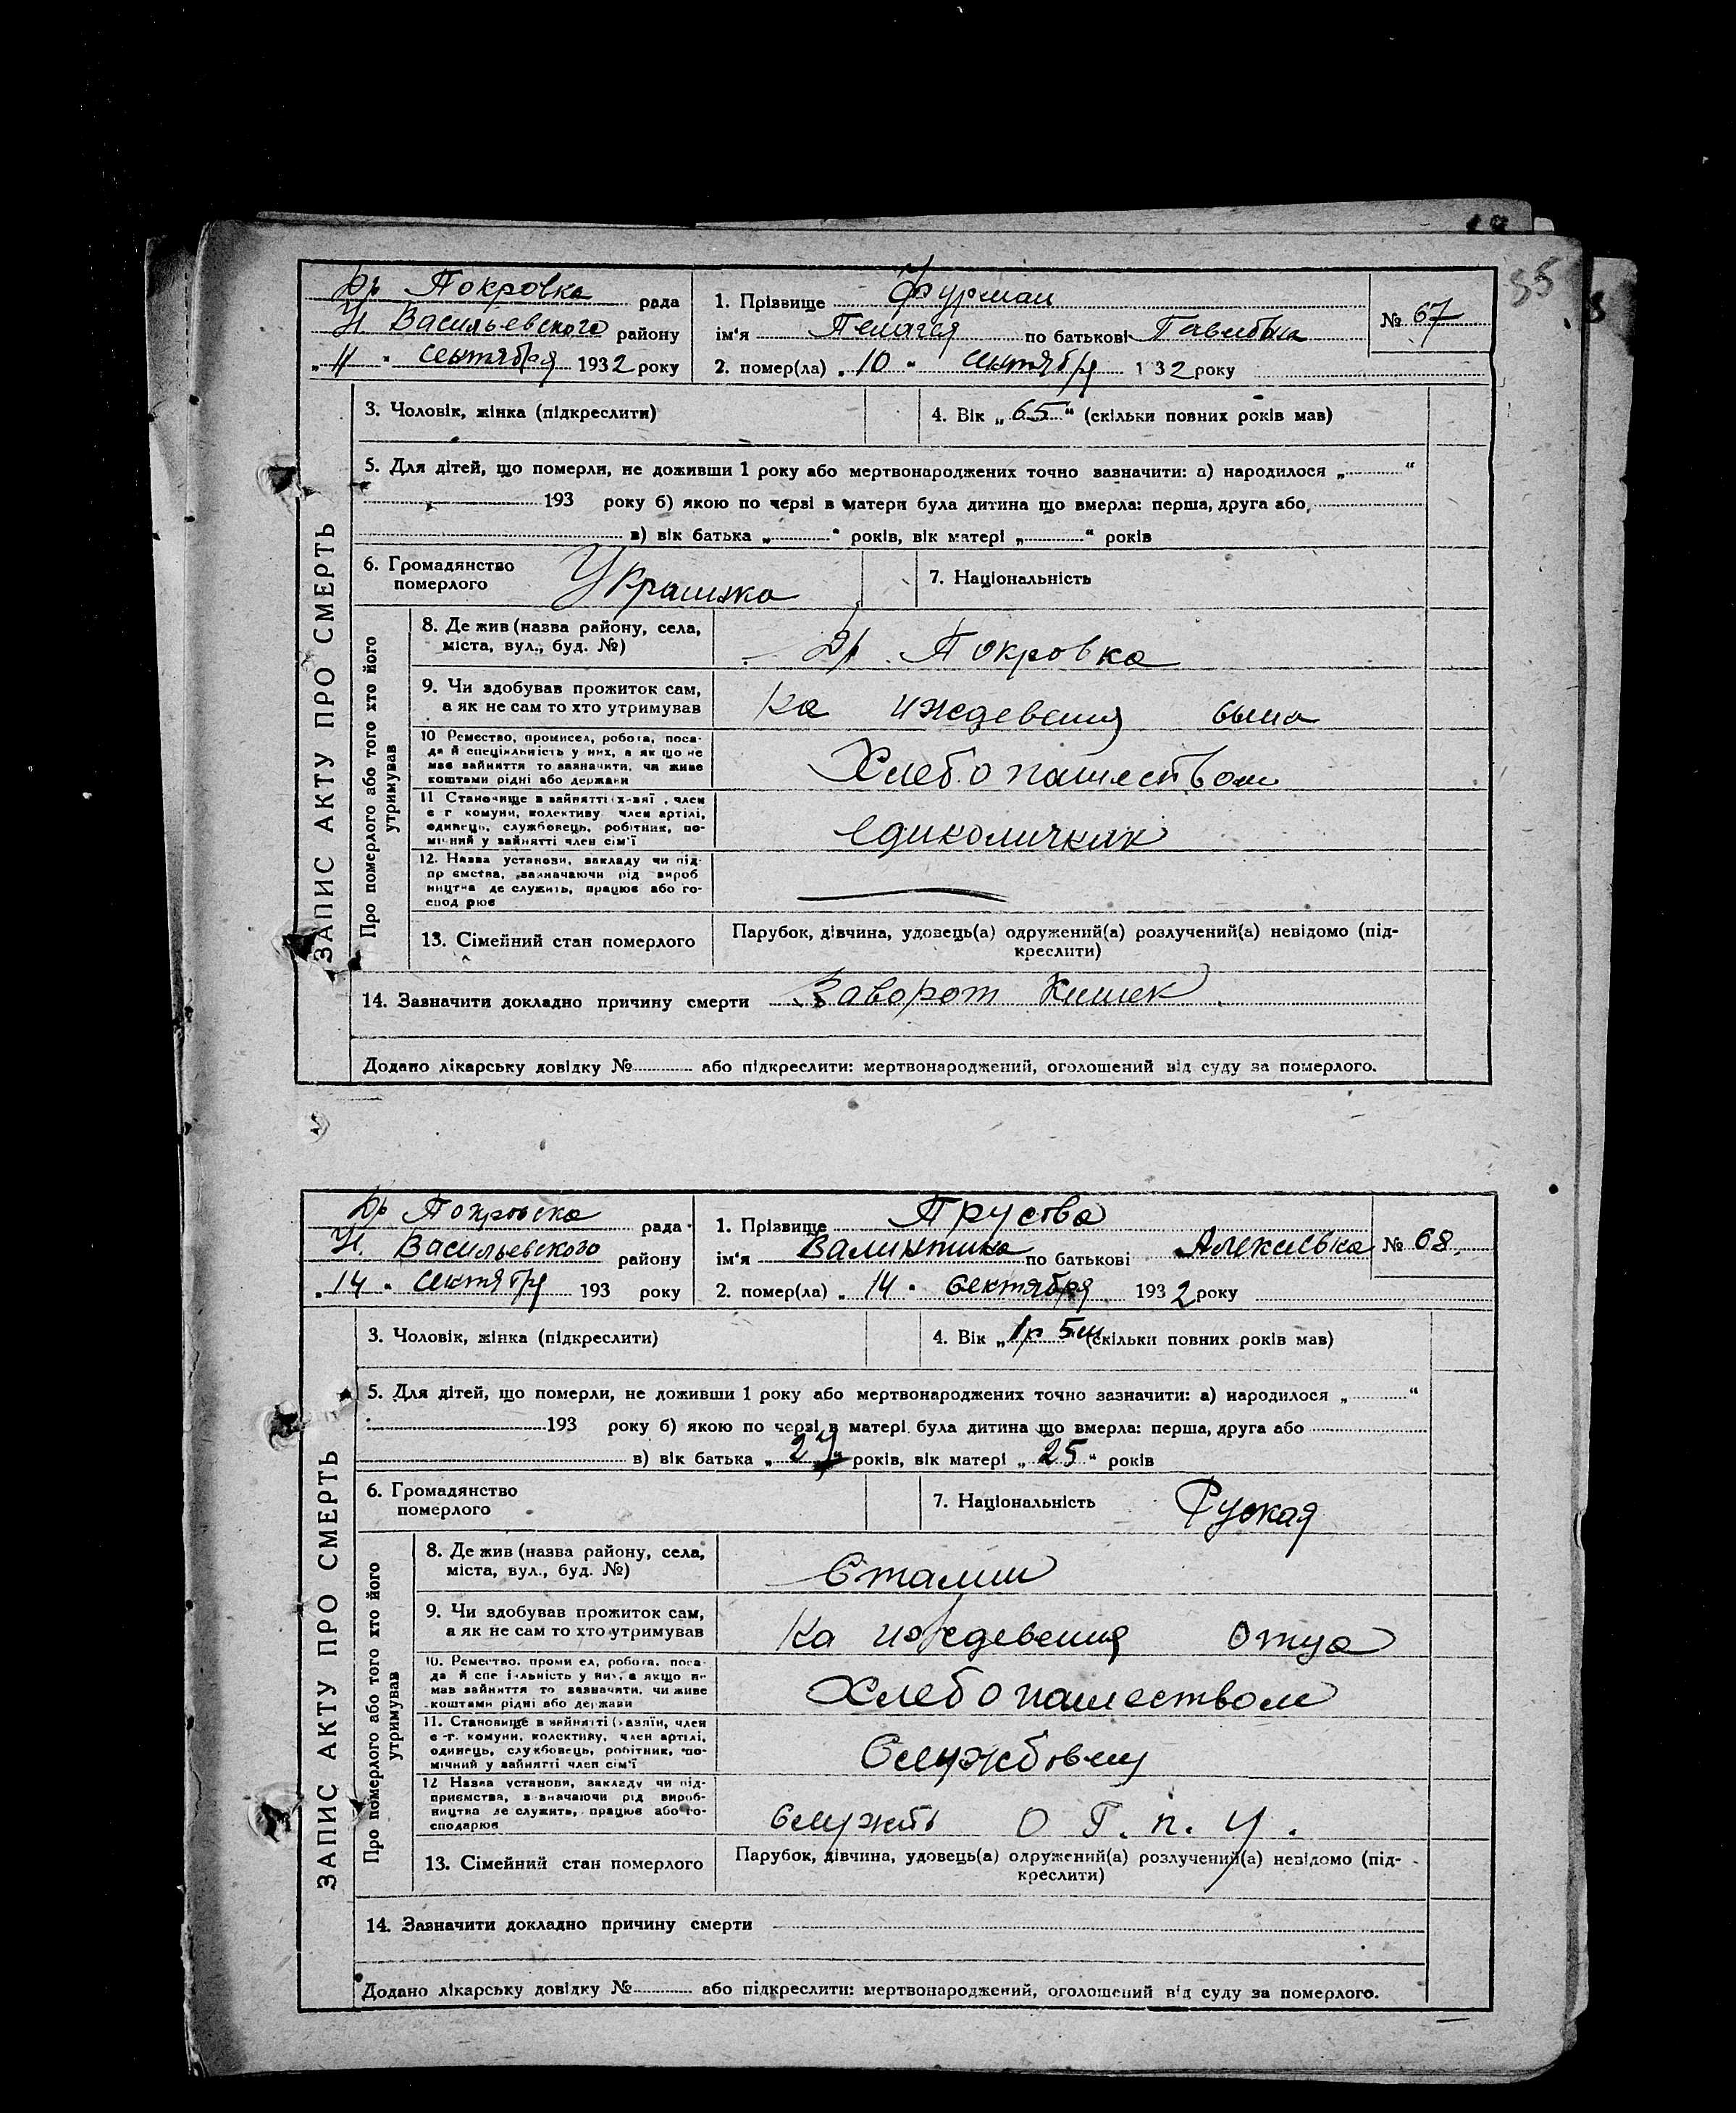 35
Др Покровка рада
Н Васильевского району
„ 11 " сентября 1932 року
1. Прізвище Фурман
ім'я Пелагея по батькові
2. помер(ла) „ 10 " сентябр 1 32 року
№ 67
ЗАПИС АКТУ ПРО СМЕРТЬ
3. Чоловік, жінка (підкреслити)
4. Вік „ 65 " (скільки повних років мав)
5. Для дітей, що померли, не доживши 1 року або мертвонароджених точно вазначити: а) народилося „ "
193 року б) якою по черзі в матери була дитина що вмерла: перша, друга або,
в) вік батька „ " років, вік матері „ " років
6. Громадянство
померлого
Украинка
7. Національність
Про померлого або того хто його
утримував
8. Де жив (назва району, села,
міста, вул., буд. №)
Др. Покровка
9. Чи здобував прожиток сам,
а як не сам то хто утримував
На иждевения сына
10 Ремество, промисел, робота, поса-
да й спеціяльність у них, а як що не
має зайняття то зазначити, чи живе
коштами рідні або держави
Хлебопашеством
11 Становище в зайнятті (х-вяї , член
с г комуни, колективу член артілі,
одинець, службовець, робітник, по-
мічний у зайнятті член сім'ї
единоличник
12. Назва установи, закладу чи під-
пр ємства, зазначаючи рід вироб
ництва де служить, працює або го-
спод рює
13. Сімейний стан померлого
Парубок, дівчина, удовець(а) одружений(а) розлучений(а) невідомо (під-
креслити)
14. Зазначити докладно причину смерти Заворот Кишек
Додано лікарську довідку № або підкреслити: мертвонароджений, оголошений від суду за померлого.
Др Покровка рада
Н. Васильевского району
„ 14 " сентябр 193 року
1. Прізвище
ім'я Валинтина по батькові Алексевна
2. помер(ла) „ 14 " Сентября 1932 року
№ 68
ЗАПИС АКТУ ПРО СМЕРТЬ
3. Чоловік, жінка (підкреслити)
4. Вік „ 1р 5м (скільки повних років мав)
5. Для дітей, що померли, не доживши 1 року або мертвонароджених точно зазначити: а) народилося „ "
193 року б) якою по черзі в матері була дитина що вмерла: перша, друга або
в) вік батька „ 27 " років, вік матері „ 25 " років
6. Громадянство
померлого
7. Національність Руская
Про померлого або того хто його
утримував
8. Де жив (назва району, села,
міста, вул., буд. №)
Сталин
9. Чи здобував прожиток сам,
а як не сам то хто утримував
На иждевения Отца
10. Ремество, проми ел, робота, поса-
да й спе і льність у них, а якщо не
мав зайняття то зазначити, чи живе
коштами рідні або держави
Хлебопашеством
11. Становище в зайнятті ( азяїн, член
с -г. комуни, колективу, член артілі,
одинець, службовець, робітник, по-
мічний у зайнятті член сім'ї
Службовец
12 Назва установи, закладу чи під-
приємства, зазначаючи рід вироб-
ництва де служить, працює або го-
сподарює
О Г. П. У.
13. Сімейний стан померлого
Парубок, дівчина, удовець(а) одружений(а) розлучений(а) невідомо (під-
креслити)
14. Зазначити докладно причину смерти
Додано лікарську довідку № або підкреслити: мертвонароджений, оголошений від суду за померлого.